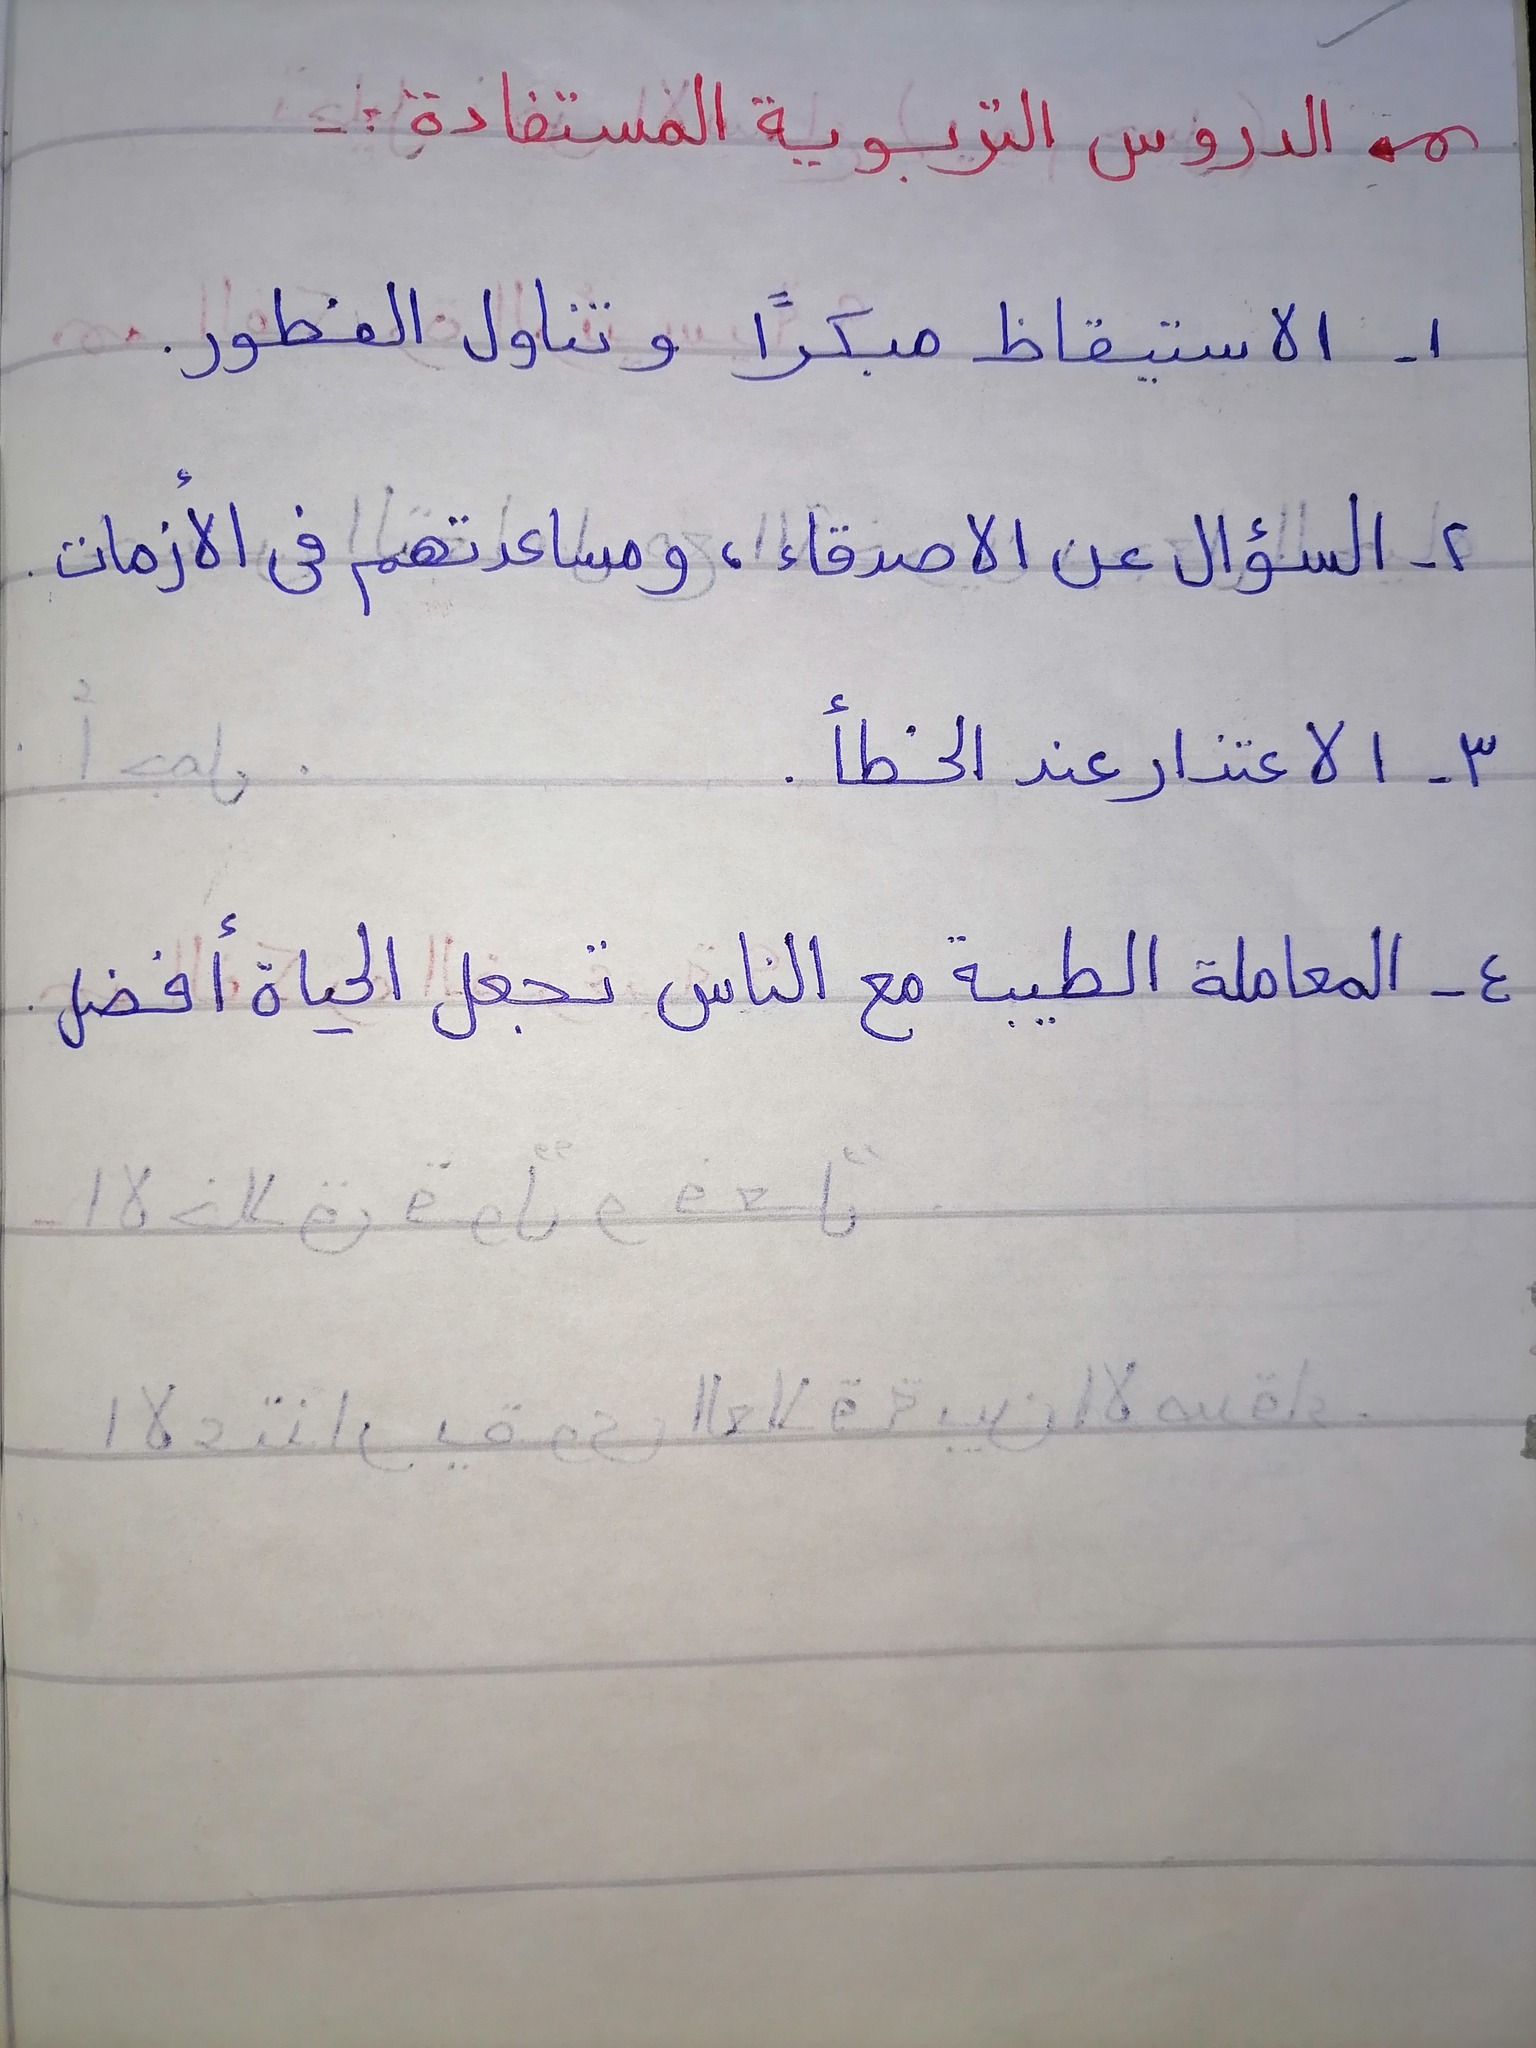 الدروس التربوية المستفادة :-
١- الاستيقاظ مبكرًا وتناول الفطور.
٢- السؤال عن الاصدقاء، ومساعدتهم فى الأزمات.
٣- الاعتذار عند الخطأ.
٤- المعاملة الطيبة مع الناس تجعل الحياة أفضل.